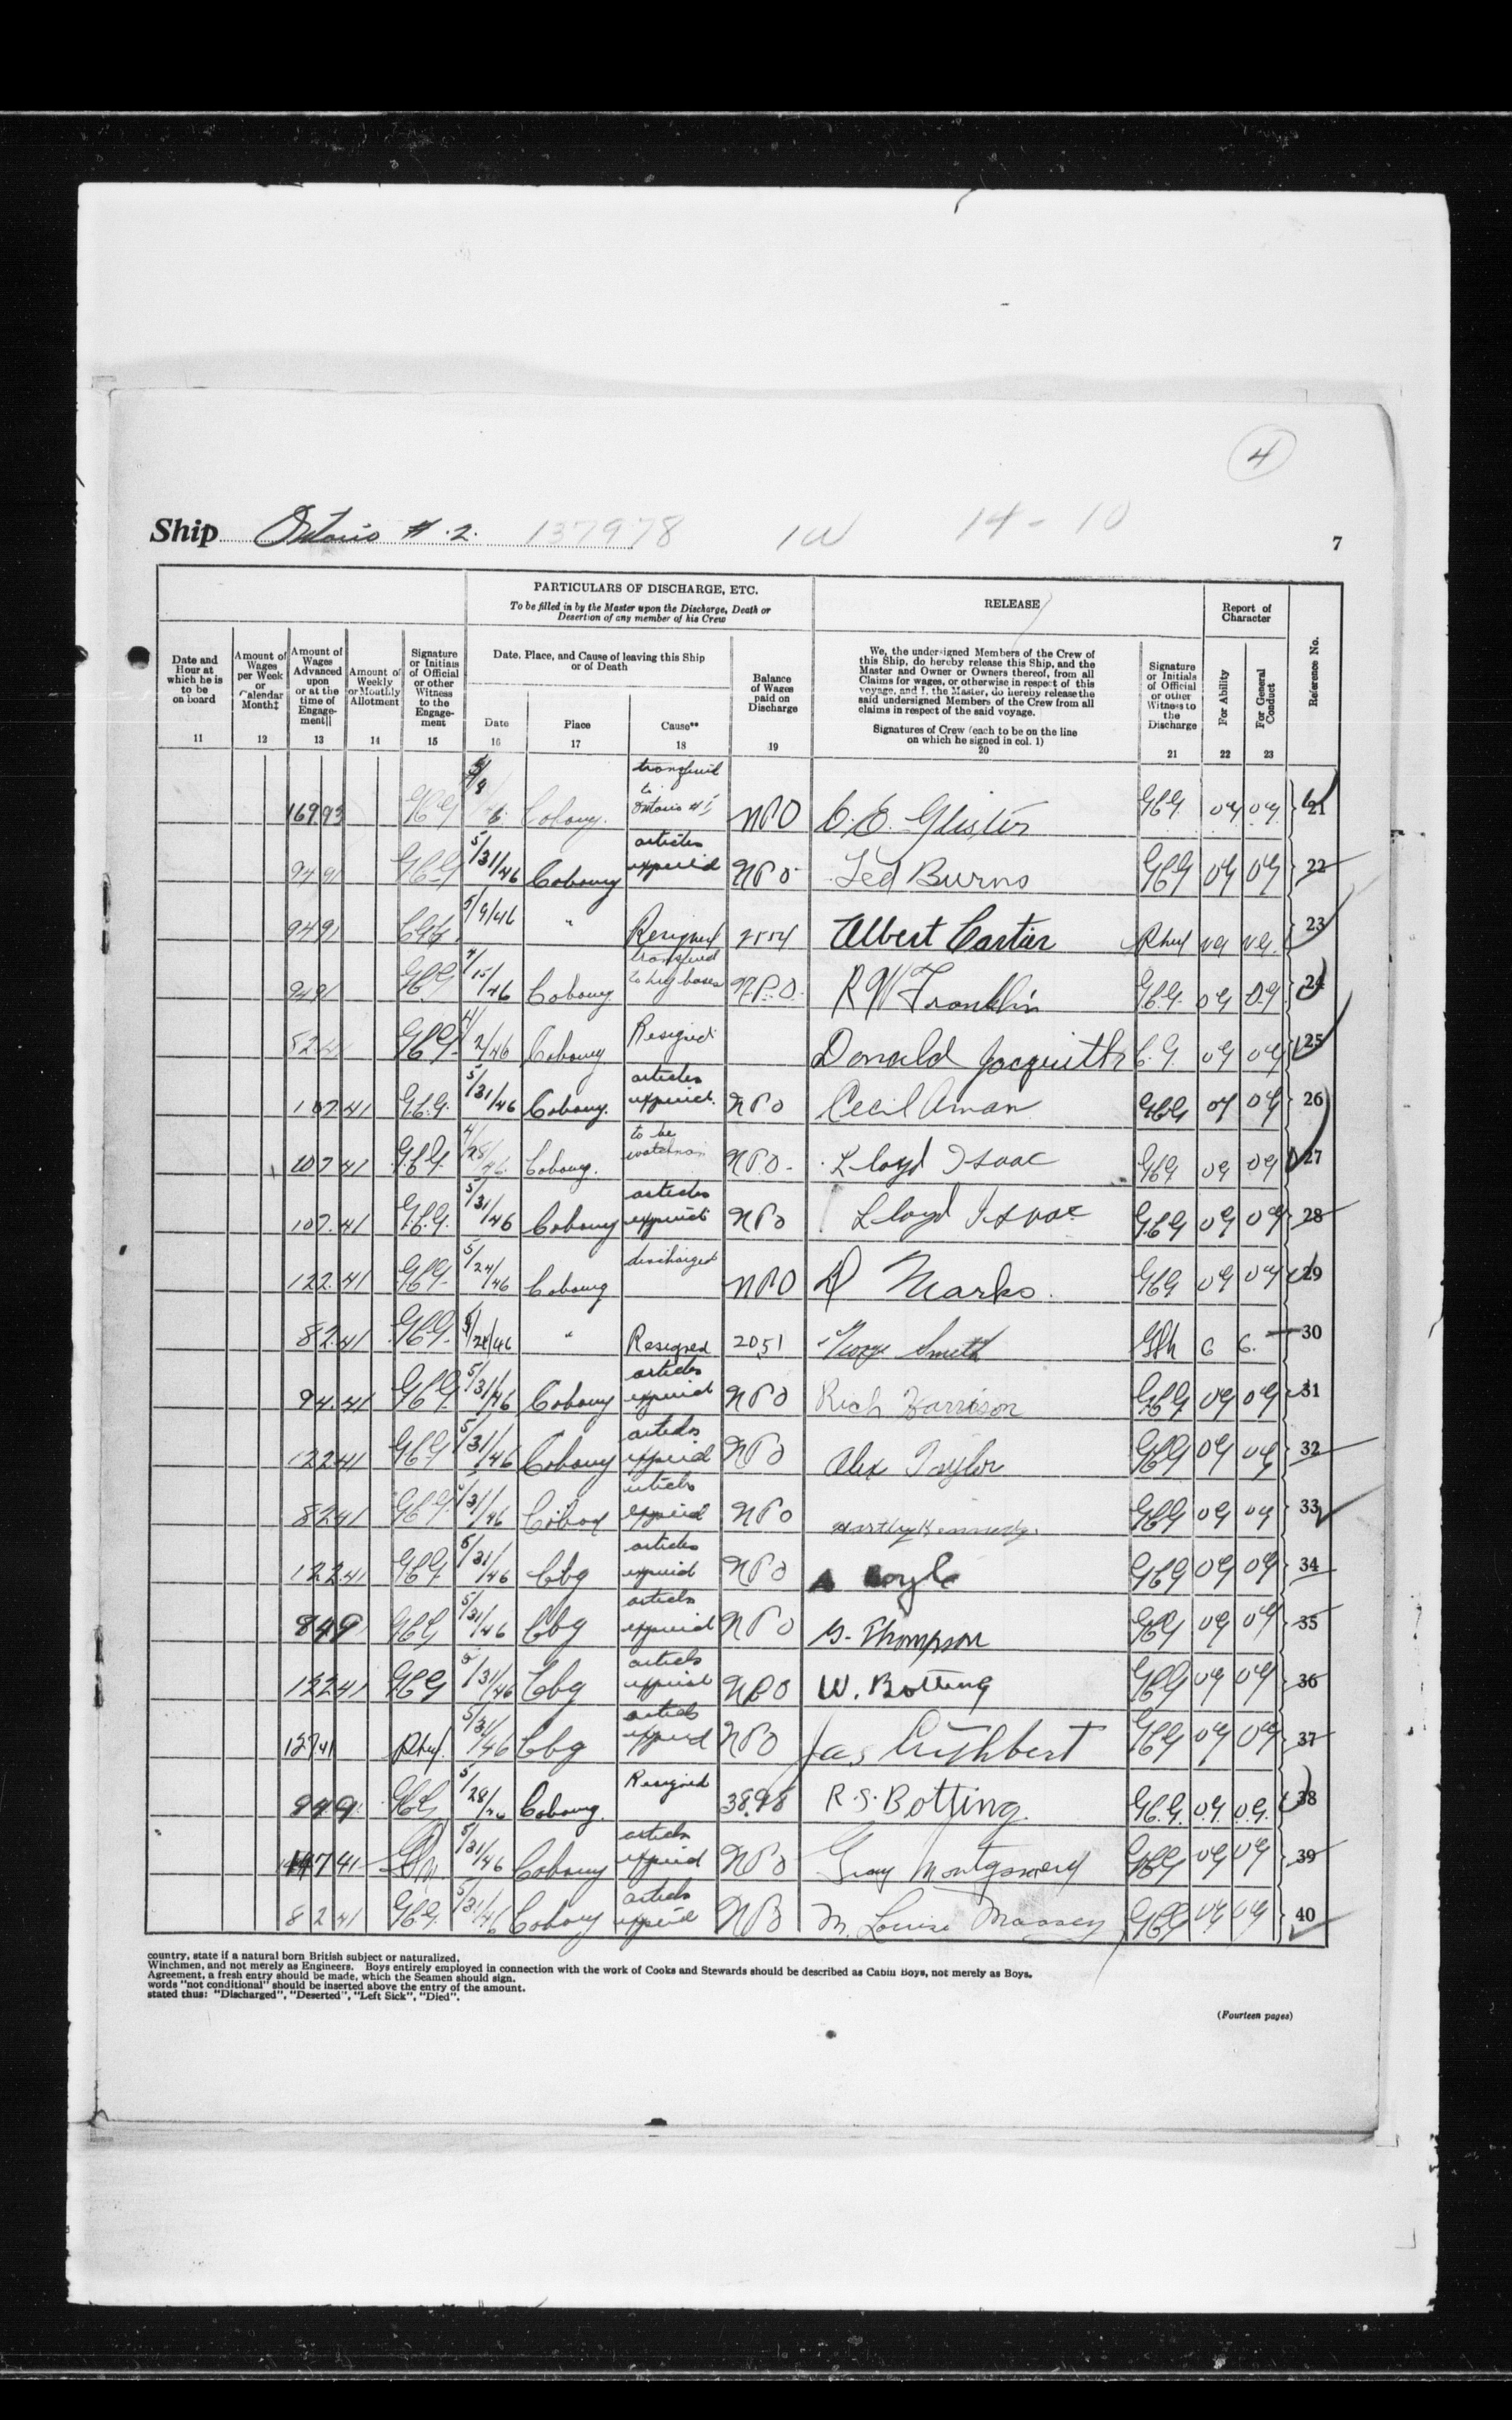 4
Ship Ontario #.2. 137978 14 - 10
7
PARTICULARS OF DISCHARGE, ETC.
To be filled in by the Master upon the Discharge, Death or
Desertion of any member of his Crew
RELEASE
Report of
Character
Reference No.
Date and
Hour at
which he is
to be
on board
11
Amount of
Wages
per Week
or
Calendar
Month‡
12
Amount of
Wages
Advanced
upon
or at the
time of
Engage-
ment||
13
Amount of
Weekly
or Monthly
Allotment
14
Signature
or Initials
of Official
or other
Witness
to the
Engage-
ment
15
Date, Place, and Cause of leaving this Ship
or of Death
Date
16
Place
17
Cause**
18
Balance
of Wages
paid on
Discharge
19
We, the undersigned Members of the Crew of
this Ship, do hereby release this Ship, and the
Master and Owner or Owners thereof, from all
Claims for wages, or otherwise in respect of this
voyage, and I, the Master, do hereby release the
said undersigned Members of the Crew from all
claims in respect of the said voyage.
Signatures of Crew (each to be on the line
on which he signed in col. 1)
20
Signature
or Initials
of Official
or other
Witness to
the
Discharge
21
For Ability
22
For General
Conduct
23
169 93 Cobourg. to Ontario #1 NPO C. E. Glister 21
94 91 5/31/46 Cobourg articles expired NPO Ted Burns GCG VG VG 22
94 91 5/9/46 " Resigned Albert Cartier VG VG 23
94 91 4/15/46 Cobourg NPO R W Franklin G.C.G. VG VG 24
4/2/46 Cobourg Resigned Donald Jacquith C.G. VG VG 25
107 41 G.C.G. 5/31/46 Cobourg. articles expired. NPO Cecil Aman GCG VG VG 26
107 41 G.C.G. 4/28/46 Cobourg. to be watchman NPO - Lloyd Isaac GCG VG VG 27
107 41 G.C.G. 5/31/46 Cobourg articles expired NPO Lloyd Isaac GCG VG VG 28
122 41 GCG 5/24/46 Cobourg discharged NPO D Marks. GCG VG VG 29
82 41 GCG. 5/24/46 " Resigned 20 51 George Smith G G. 30
94 41 GCG 5/31/46 Cobourg articles expired NPO Rich Harrison GCG VG VG 31
122 41 GCG 5/31/46 Cobourg articles expired NPO Alex Taylor GCG VG VG 32
82 41 GCG 5/31/46 articles expired NPO Hartly Kennedy. GCG VG VG 33
122 41 GCG 5/31/46 Cbg articles expired NPO GCG VG VG 34
84 9 GCG 5/31/46 Cbg articles expired NPO G. Thompson GCG VG VG 35
122 41 GCG 5/31/46 Cbg articles expired NPO W. Botting GCG VG VG 36
5/31/46 Cbg articles expired NPO Jas Cuthbert GCG VG VG 37
GCG 5/28/46 Cobourg. Resigned 38.98 R. S. Botting. G.C.G. V.G. V.G. 38
147 41 5/31/46 Cobourg articles expired NPO Gray Montgomery GCG VG VG 39
82 41 GCG 5/31/46 Cobourg articles expired NPO M. Louise Massey GCG VG VG 40
country, state if a natural born British subject or naturalized.
Winchmen, and not merely as Engineers. Boys entirely employed in connection with the work of Cooks and Stewards should be described as Cabin Boys, not merely as Boys.
Agreement, a fresh entry should be made, which the Seamen should sign.
words "not conditional" should be inserted above the entry of the amount.
stated thus: "Discharged", "Deserted", "Left Sick", "Died".
(Fourteen pages)